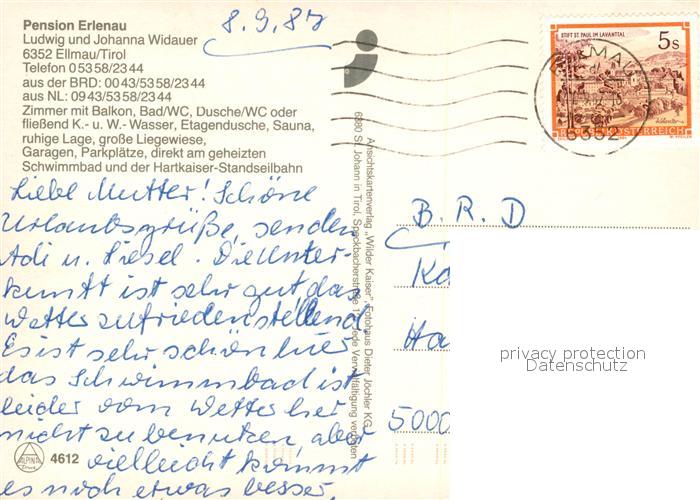 Pension Erlenau
Ludwig und Johanna Widauer
6352 Ellmau/Tirol
Telefon 0 53 58/23 44
aus der BRD: 00 43/53 58/23 44
aus NL: 09 43/53 58/23 44
Zimmer mit Balkon, Bad/WC, Dusche/WC oder
fließend K.- u. W.- Wasser, Etagendusche, Sauna,
ruhige Lage, große Liegewiese,
Garagen, Parkplätze, direkt am geheizten
Schwimmbad und der Hartkaiser-Standseilbahn
8.9.87
Liebe Mutter! Schöne
Urlaubsgrüße, senden
Adi u. Liesel. Die Unter-
kunft ist sehr gut das
Wetter zufriedenstellend.
Es ist sehr schön hier
das Schwimmbad ist
leider vom Wetter her
nicht zu benutzen, aber
vielleicht kommt
es noch etwas besser.
ALPINA
4612
Ansichtskartenverlag „Wilder Kaiser", Fotohaus Dieter Jöchler KG
6380 St. Johann in Tirol, Speckbacherstraße Jede Vervielfältigung verboten
STIFT ST. PAUL IM LAVANTTAL
5 S
REPUBLIK ÖSTERREICH
6352
B. R. D
Ha
5000
privacy protection
Datenschutz